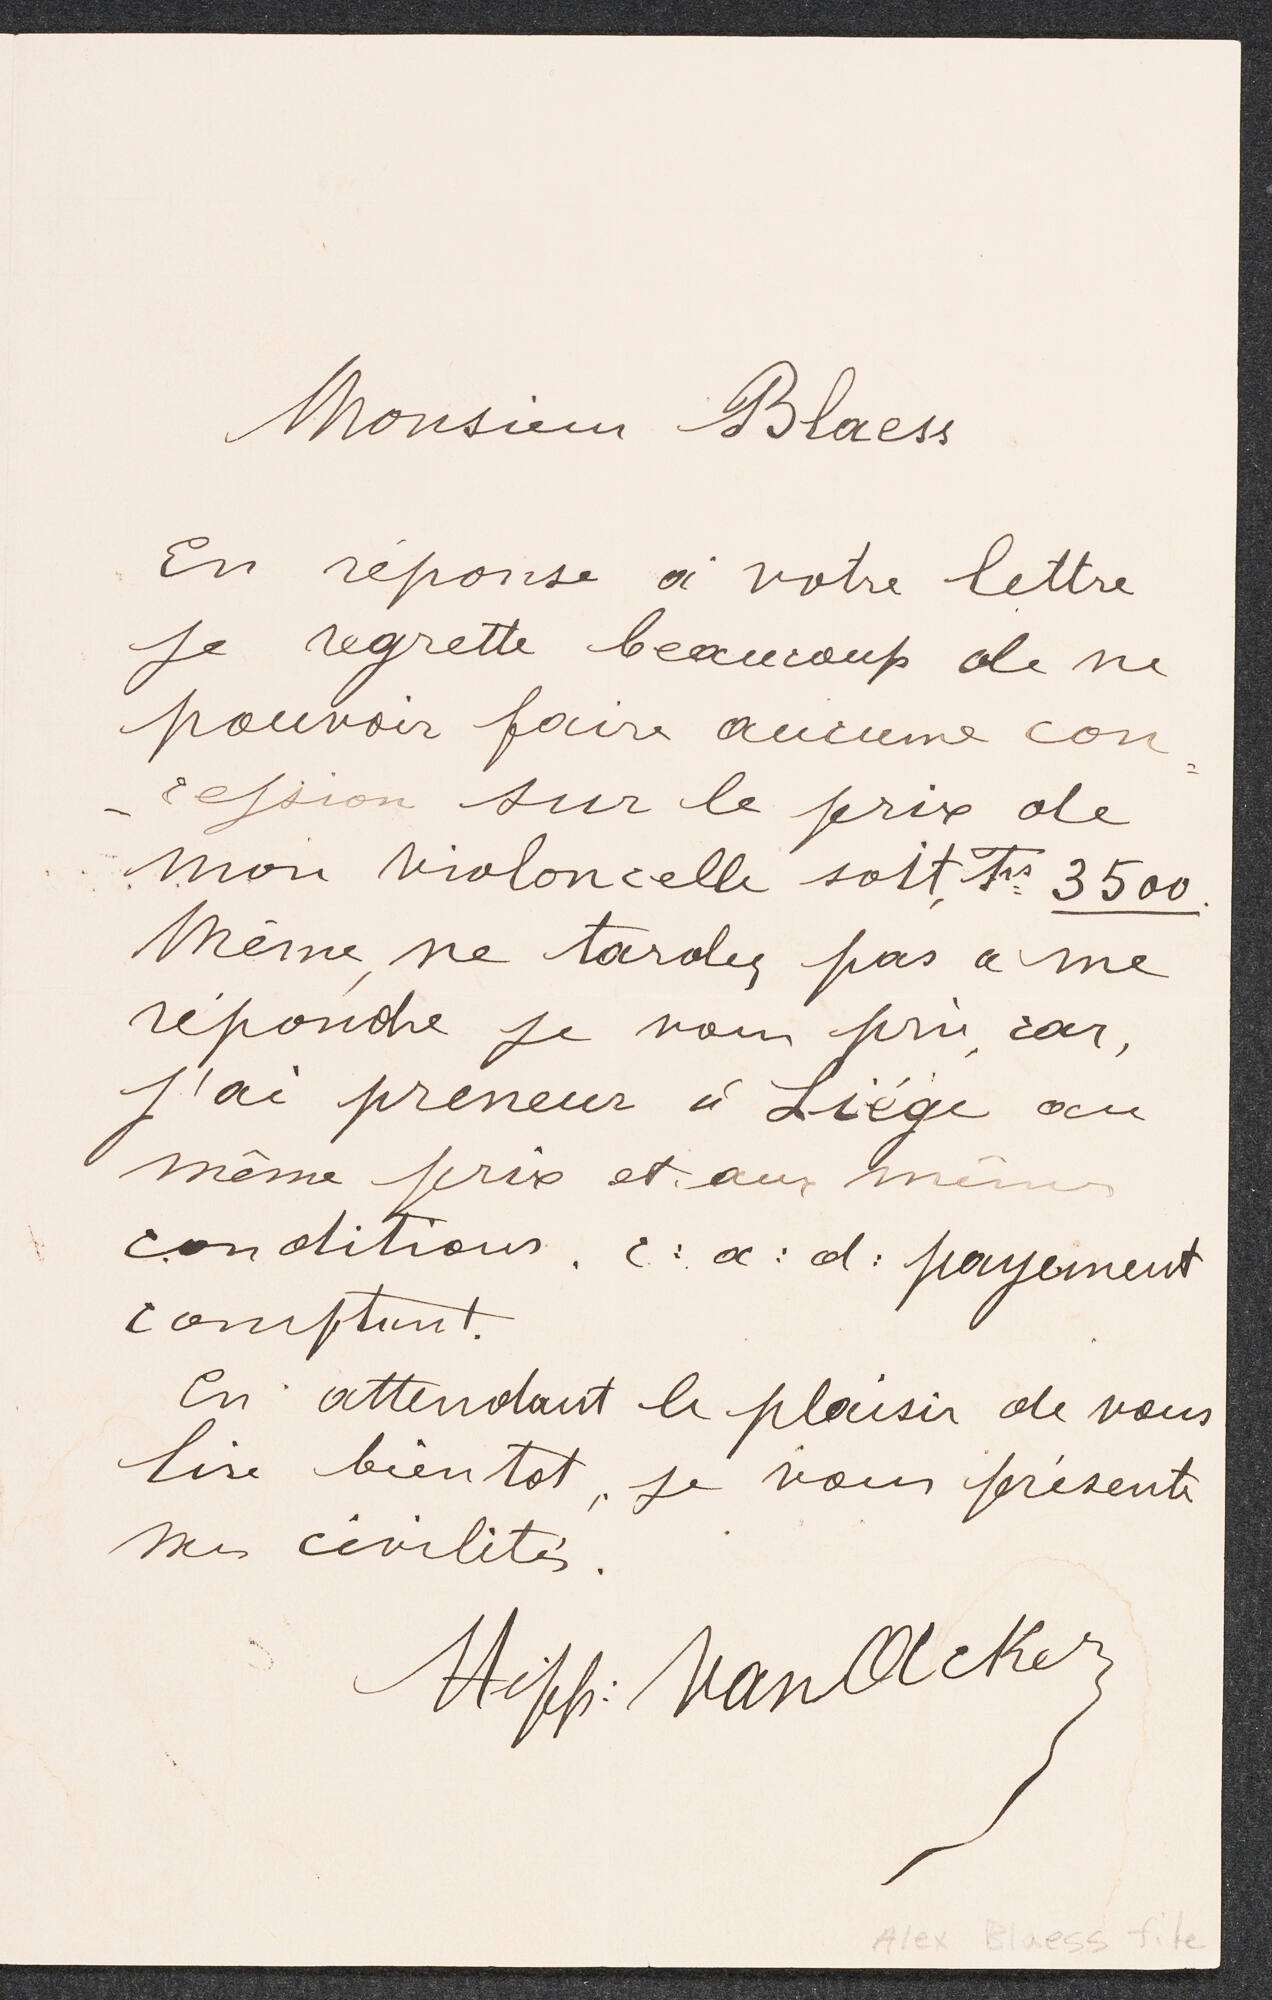 Monsieur Blaess
En réponse à votre lettre
je regrette beaucoup de ne
pouvoir faire aucune con=
-cession sur le prix de
mon violoncelle soit, Frs 3500.
Même, ne tardez pas a me
répondre je vous prie, car,
j'ai preneur à Liége au
même prix et aux mêmes
conditions. c: a: d: payement
comptant.
En attendant le plaisir de vous
lire bientot, je vous présente
mes civilités.
Hipp: Van Acker
Alex Blaess file